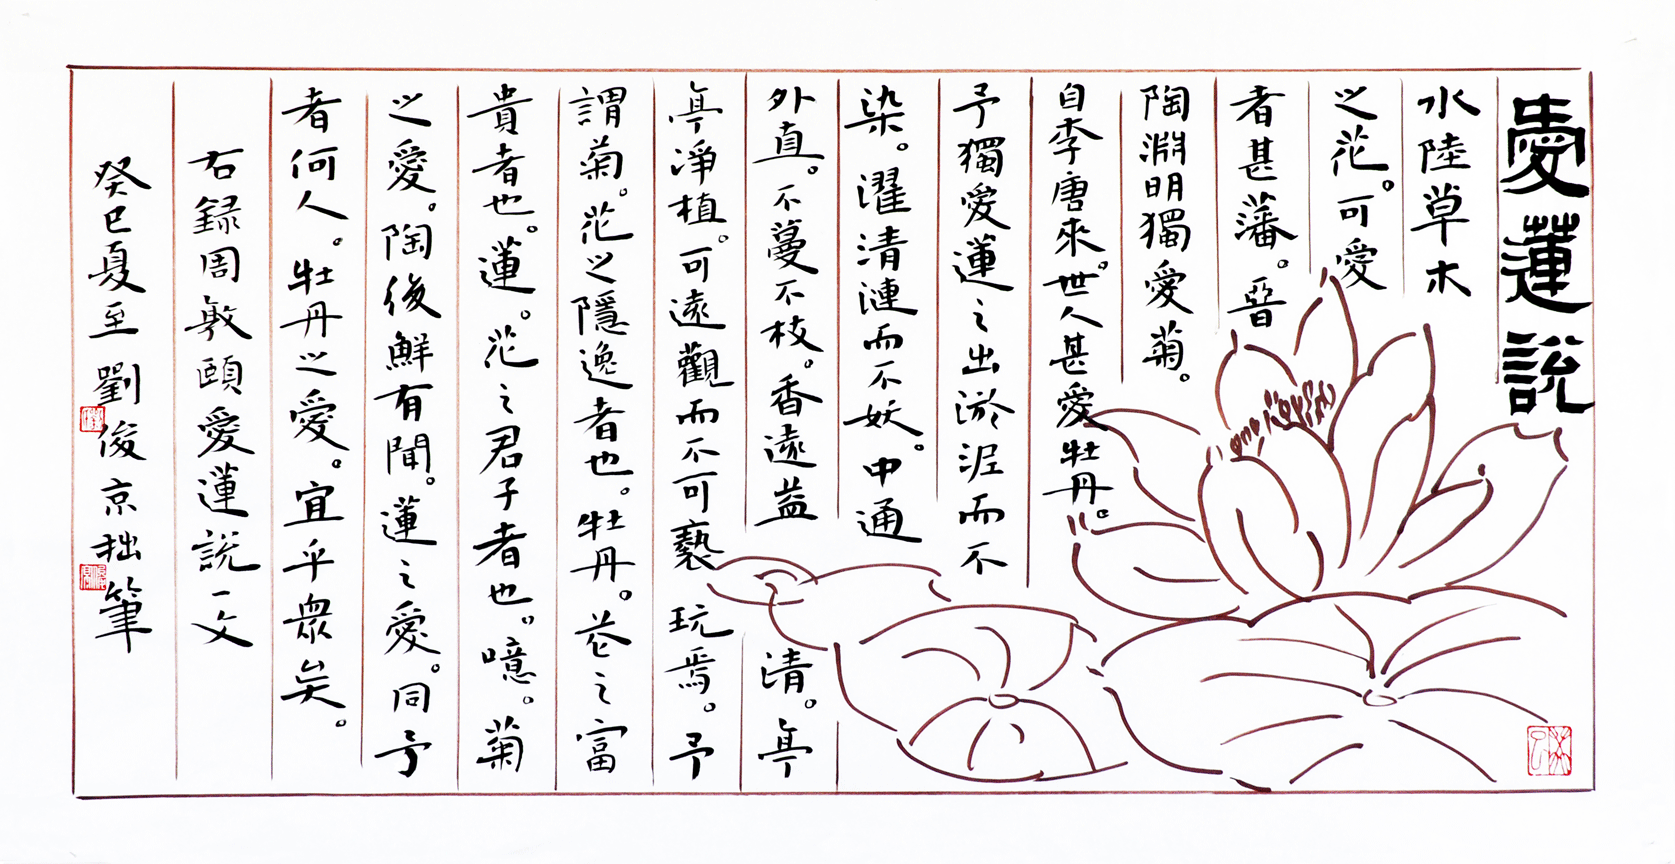 愛蓮說
水陸草木
之花。可愛
者甚藩。晉
陶淵明獨愛菊。
自李唐來。世人甚愛牡丹。
予獨愛蓮之出淤泥而不
染。濯清漣而不妖。中通
外直。不蔓不枝。香遠益清。亭
亭淨植。可遠觀而不可褻玩焉。予
謂菊。花之隱逸者也。牡丹。花之富
貴者也。蓮。花之君子者也。噫。菊
之愛。陶後鮮有聞。蓮之愛。同予
者何人。牡丹之愛。宜乎眾矣。
右録周敦頤愛蓮說一文
癸巳夏至劉俊京拙筆